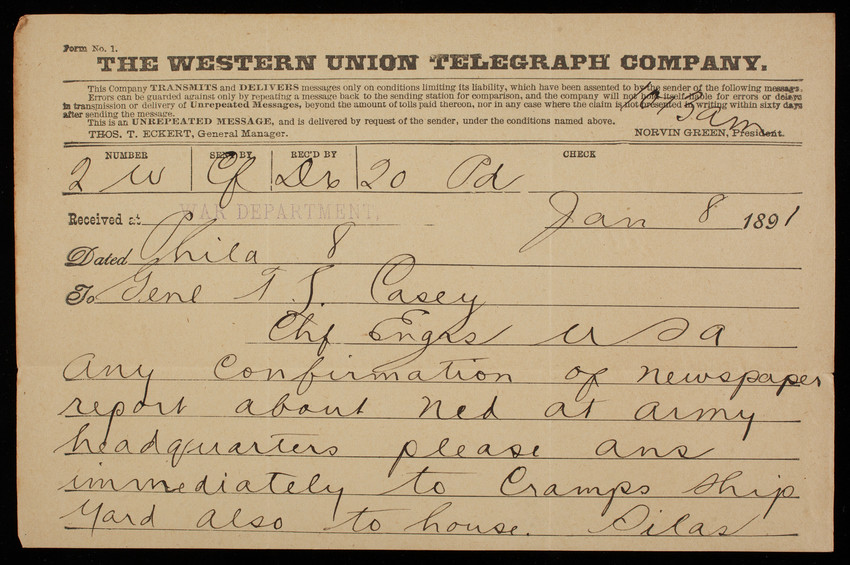 Form No. 1.
THE WESTERN UNION TELEGRAPH COMPANY.
This Company TRANSMITS and DELIVERS messages only on conditions limiting its liability, which have been assented to by the sender of the following message.
Errors can be guarded against only by repeating a message back to the sending station for comparison, and the company will not hold itself liable for errors or delays
in transmission or delivery of Unrepeated Messages, beyond the amount of tolls paid thereon, nor in any case where the claim is not presented in writing within sixty days
after sending the message.
This is an UNREPEATED MESSAGE, and is delivered by request of the sender, under the conditions named above.
THOS. T. ECKERT, General Manager. NORVIN GREEN, President.
NUMBER SENT BY REC'D BY CHECK
2 W Cf Ds 20 Pd
Received at WAR DEPARTMENT, Jan 8 1891
Dated Phila 8
To Genl T L Casey
Chf Engrs U S A
Any confirmation of newspaper
report about Ned at army
headquarters please ans
immediately to Cramps Ship
Yard also to house. Silas